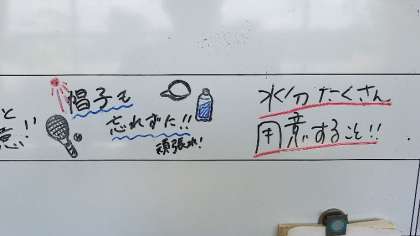 と
意!!
帽子も
忘れずに!!
頑張れ!
水分たくさん
用意すること!!